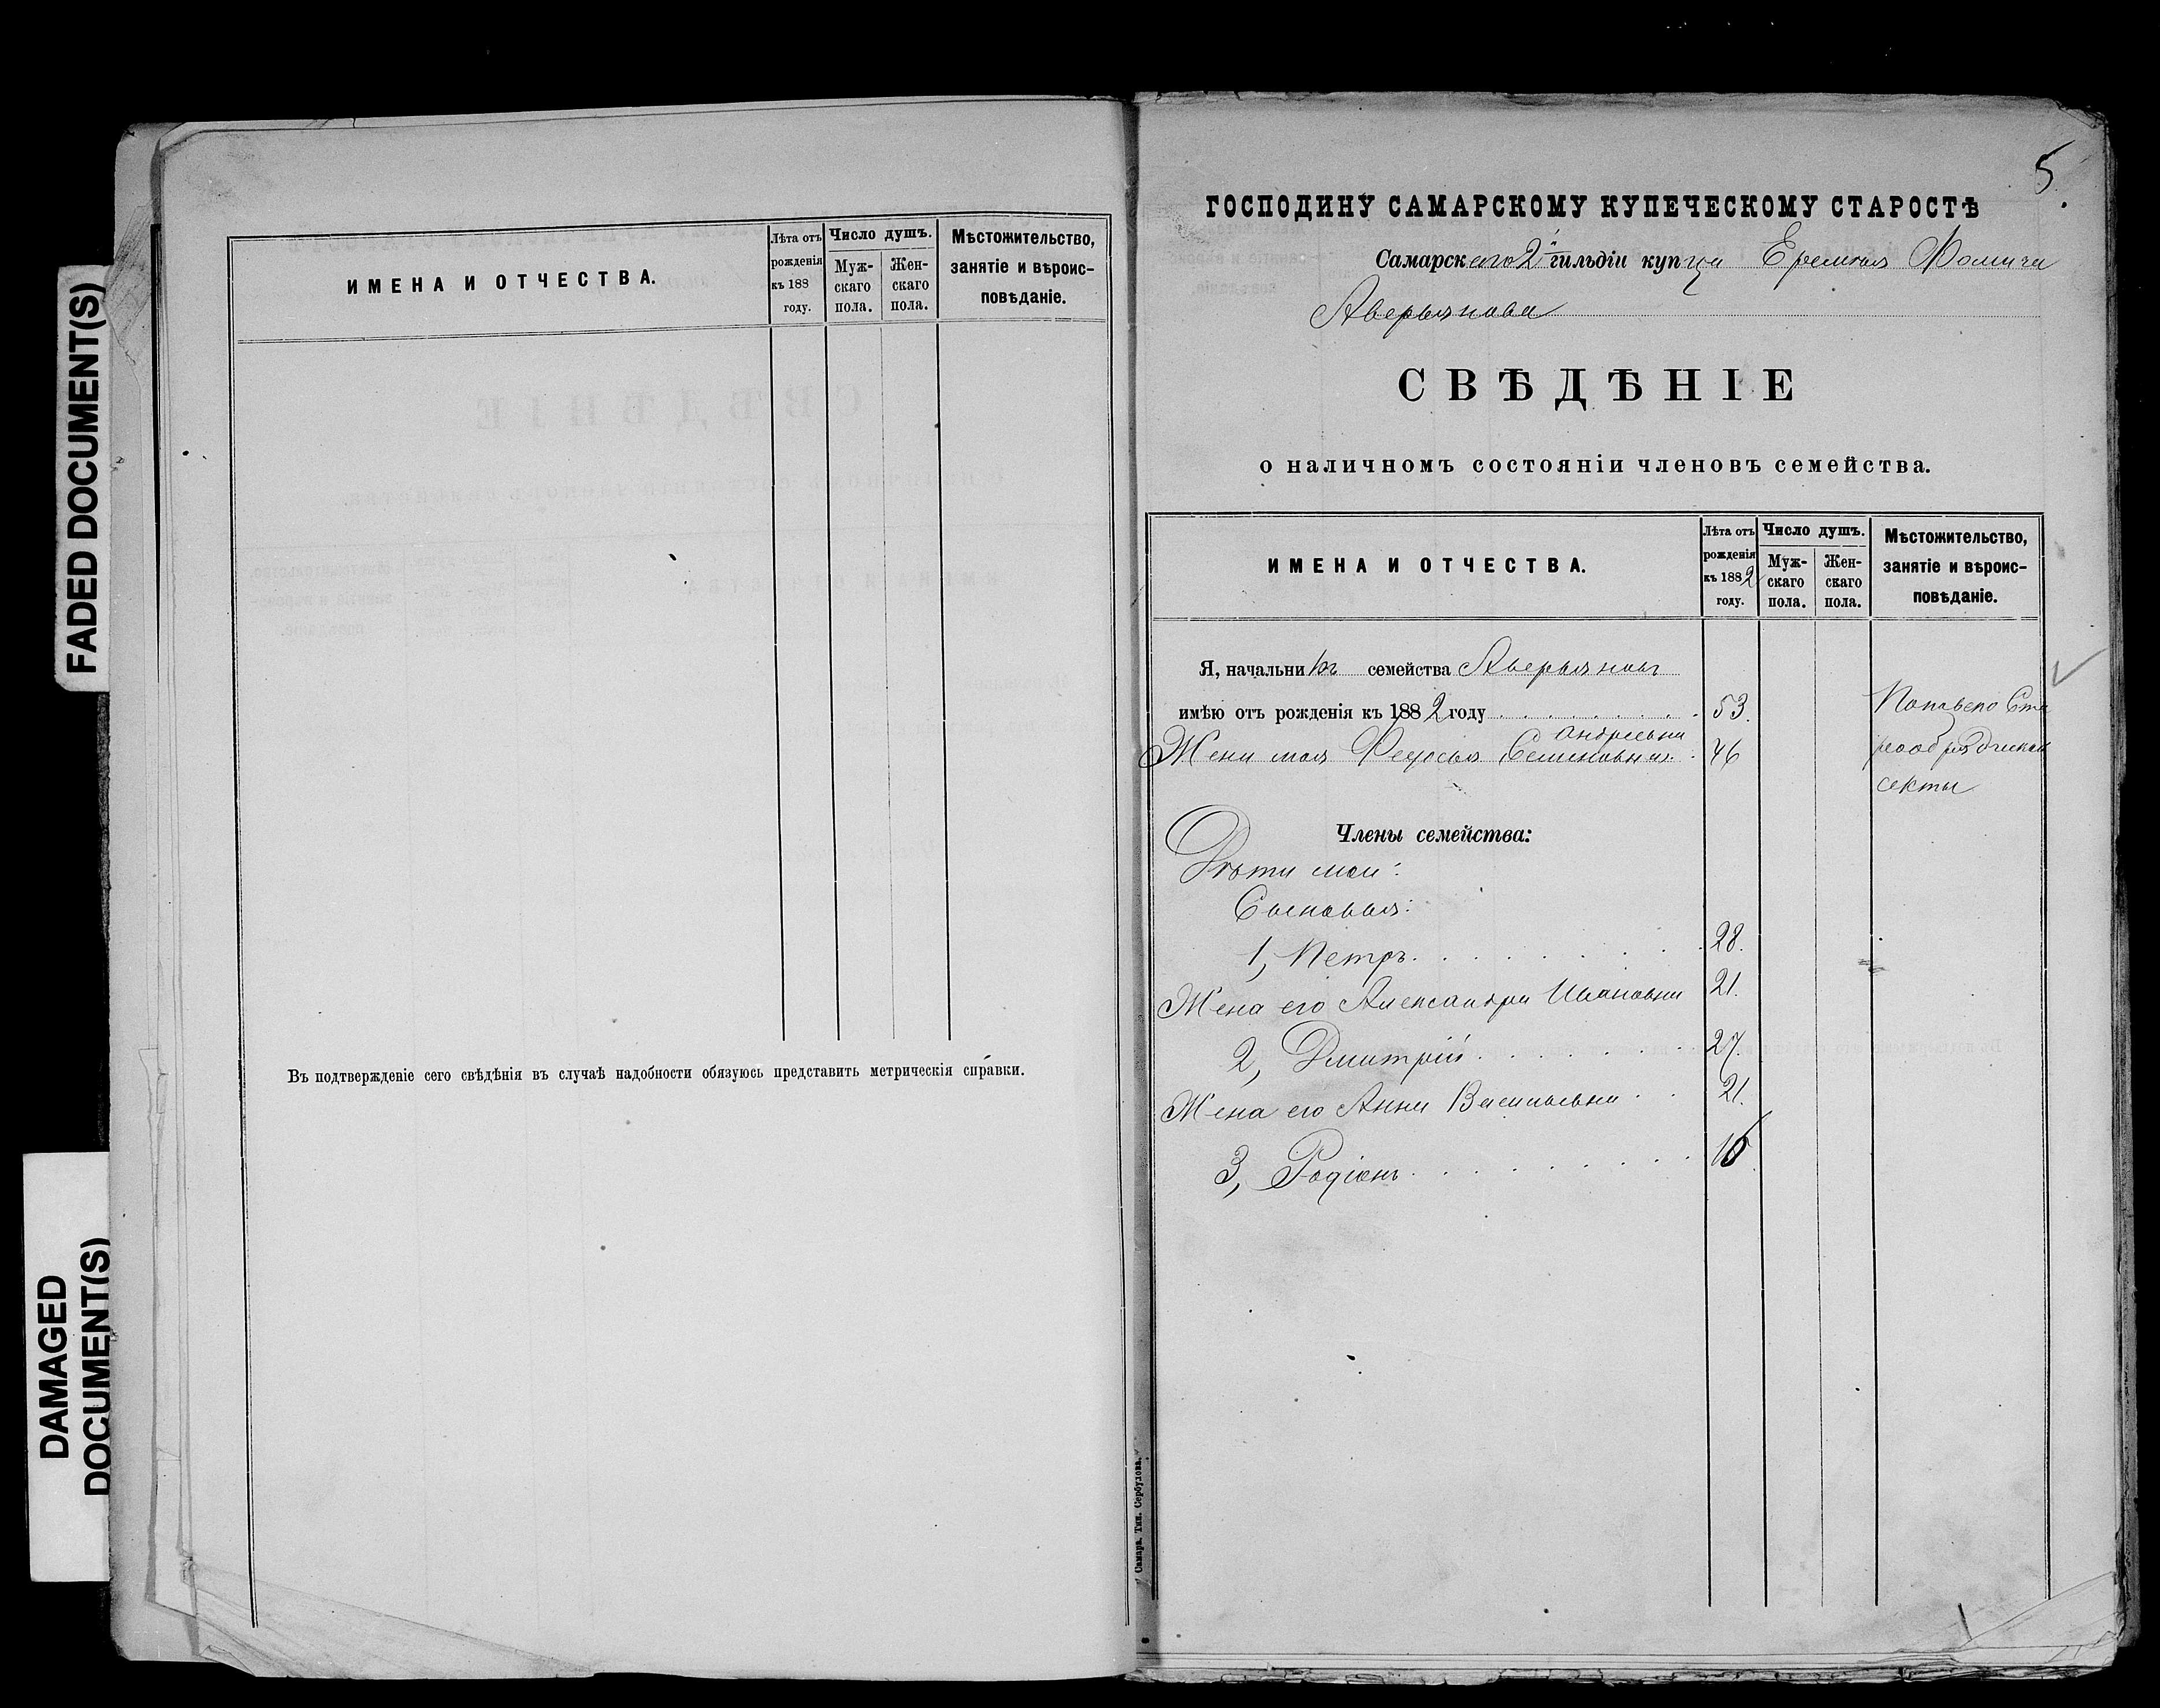 FADED DOCUMENT(S)
DAMAGED
DOCUMENT(S)
ИМЕНА И ОТЧЕСТВА.
Лѣта отъ
рожденія
къ 188
году.
Число душъ.
Муж-
скаго
пола.
Жен-
скаго
пола.
Мѣстожительство,
занятіе и вѣроис-
повѣданіе.
Въ подтвержденіе сего свѣдѣнія въ случаѣ надобности обязуюсь представить метрическія справки.
5.
ГОСПОДИНУ САМАРСКОМУ КУПЕЧЕСКОМУ СТАРОСТѢ
Самарскаго 2й гильдіи купца Еремѣя Фомича
Аверьянова
СВѢДѢНІЕ
о наличномъ состояніи членовъ семейства.
ИМЕНА И ОТЧЕСТВА.
Лѣта отъ
рожденія
къ 1882
году.
Число душъ.
Муж-
скаго
пола.
Жен-
скаго
пола.
Мѣстожительство,
занятіе и вѣроис-
повѣданіе.
Я, начальникъ семейства Аверьяновъ
имѣю отъ рожденія къ 1882 году 53.
Андреевна
Жена моя Федосья Семеновна 46
рообрядческой
секты
Члены семейства:
Дѣти мои:
Сыновья:
1, Петръ 28.
Жена его Александра Ивановна 21.
2, Дмитрій 27.
Жена его Анна Васильевна 21.
3, Родіонъ
Самара. Тип. Сербулова.